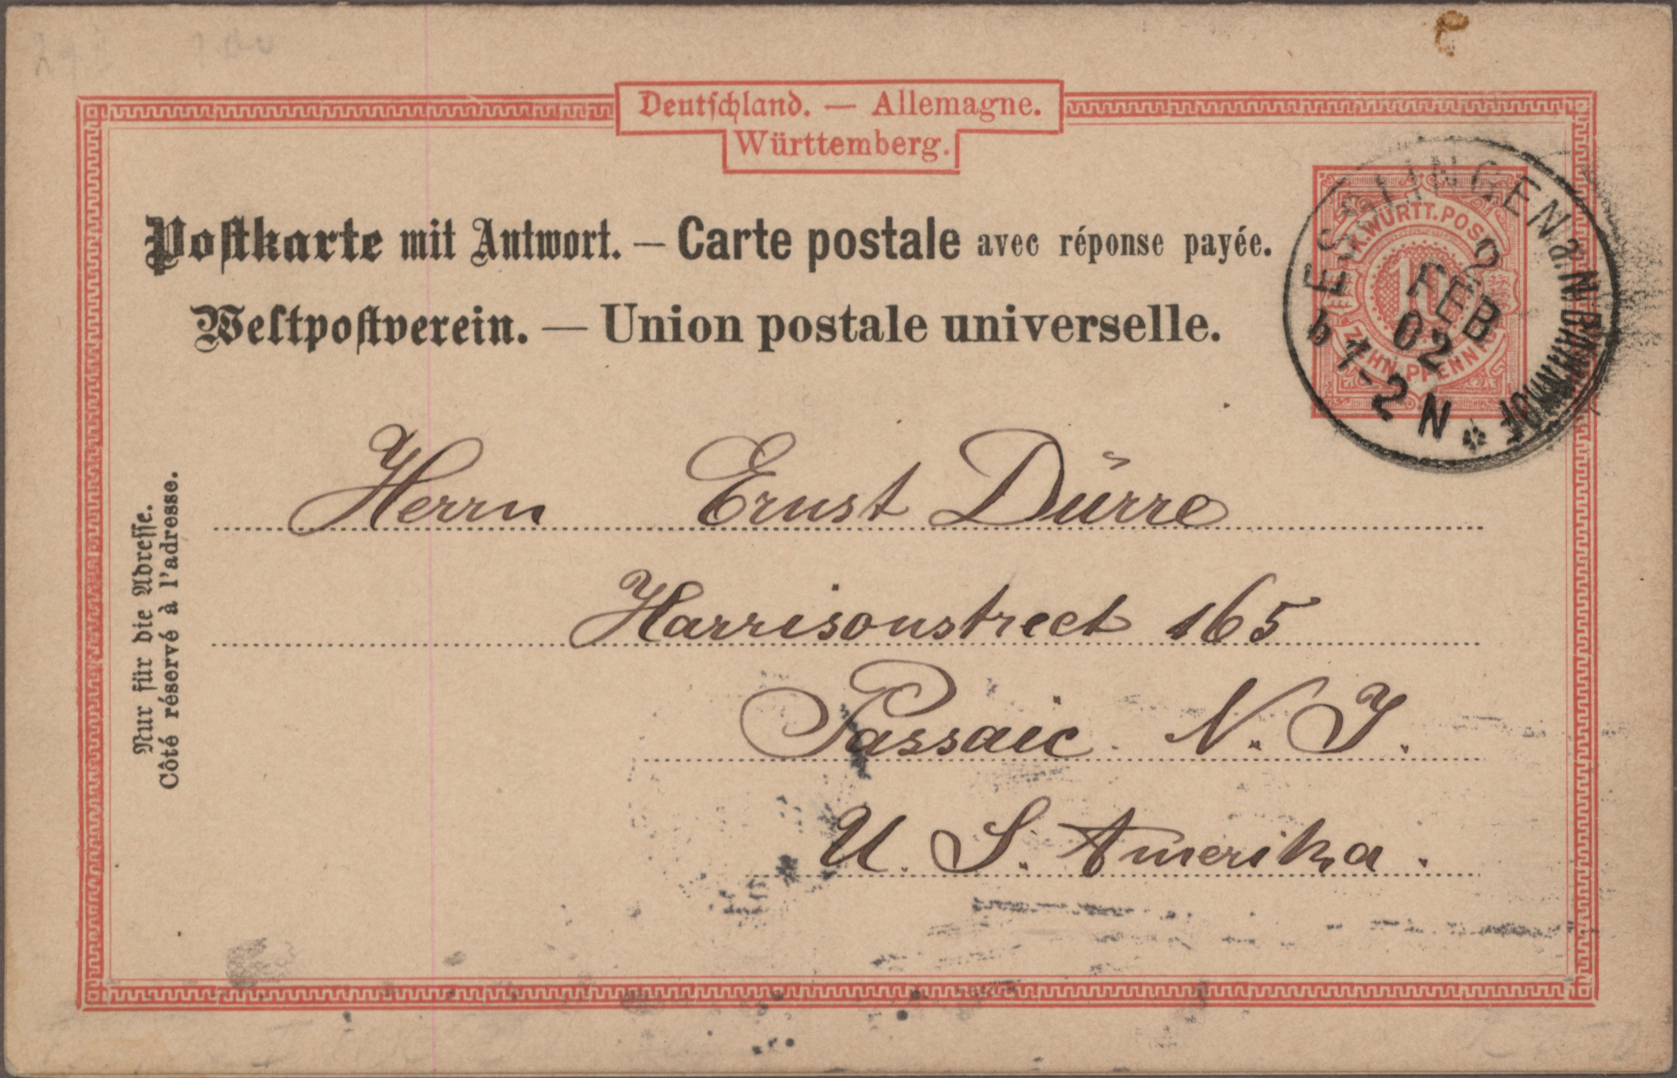 Deutschland. — Allemagne.
Württemberg.
Postkarte mit Antwort. — Carte postale avec réponse payée.
Weltpostverein. — Union postale universelle.
K. WÜRTT. POST
10
ZEHN PFENNIG
ESSLINGEN a. N. BAHNHOF
2
FEB
02
b 1-2 N
Nur für die Adresse.
Côté réservé à l'adresse.
Herrn Ernst Dürre
Harrisonstreet 165
Passaic N. J.
U. S. Amerika.